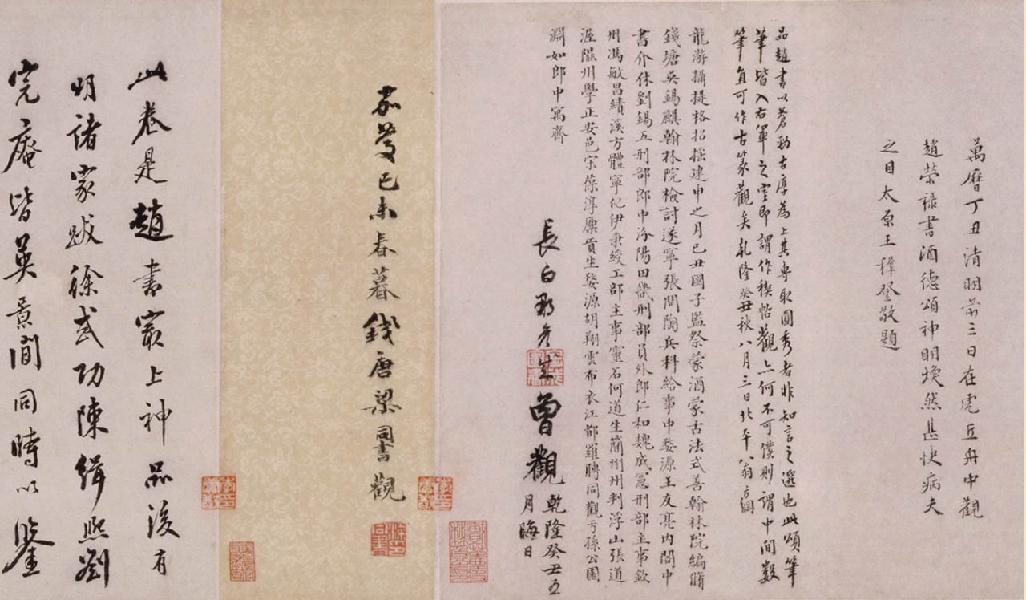 萬曆丁丑清明前三日在虎丘舟中觀
趙榮祿書酒德頌神明煥然甚快病夫
之目太原王穉登敬題
品趙書以蒼勁古厚為上其專取圓秀者非知言之選也此頌筆
筆皆入右軍之室即謂作稧帖觀亦何不可僕則謂中間數
筆直可作古篆觀矣乾隆癸丑秋八月三日北平翁方綱
龍游攝提格招搖建申之月己丑國子監祭酒蒙古法式善翰林院編脩
錢塘吳錫麒翰林院檢討遂寧張問陶兵科給事中婺源王友亮內閣中
書介休劉錫五刑部郎中汾陽田幾刑部員外郎仁和魏成憲刑部主事歙
州馮敏昌績溪方體寧化伊秉綬工部主事靈石何道生蘭州州判浮山張道
渥隰州學正安邑宋葆淳廩貢生婺源胡翔雲布衣江都羅聘同觀于孫公園
淵如郎中寓齋
長白那彥成曾觀
乾隆癸丑五
月晦日
嘉慶己未春暮錢唐梁同書觀
此卷是趙書最上神品後有
明諸家跋徐武功陳緝熙劉
完庵皆英景間同時以鑒